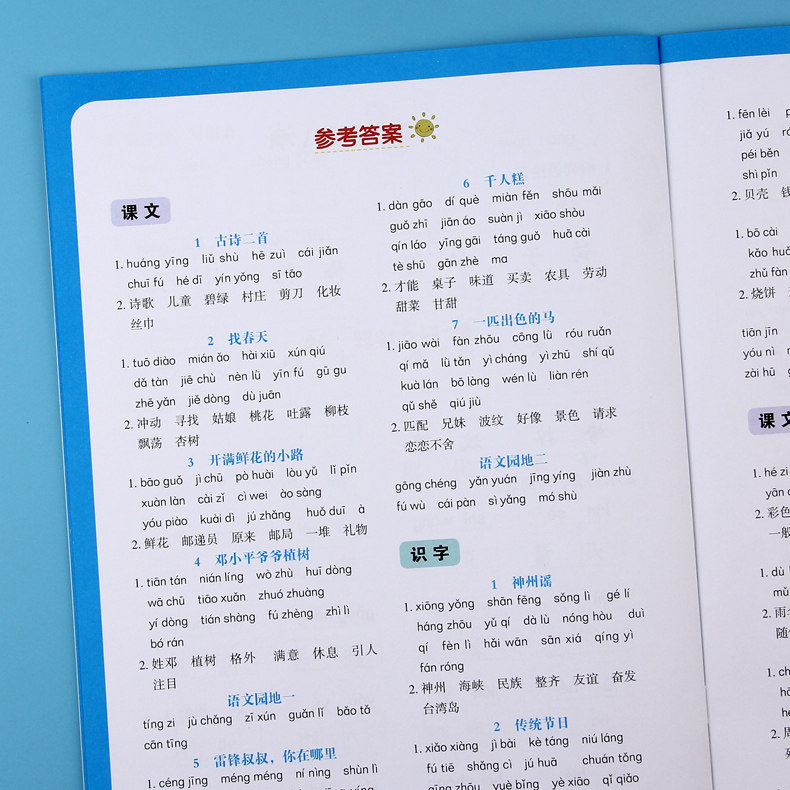 参考答案
课文
1 古诗二首
1. huáng yīng liǔ shù hē zuì cái jiǎn
chuī fú hé dī yín yǒng sī tāo
2. 诗歌 儿童 碧绿 村庄 剪刀 化妆
丝巾
2 找春天
1. tuō diào mián ǎo hài xiū xún qiú
dǎ tàn jiē chù nèn lǜ yīn fú gū gu
zhē yǎn jiě dòng dù juān
2. 冲动 寻找 姑娘 桃花 吐露 柳枝
飘荡 杏树
3 开满鲜花的小路
1. bāo guǒ jì chū pò huài lòu yǔ lǐ pǐn
xuàn làn cài zǐ cì wei ào sàng
yóu piào kuài dì jú zhǎng huǒ duī à
2. 鲜花 邮递员 原来 邮局 一堆 礼物
4 邓小平爷爷植树
1. tiān tán nián líng wò zhù huī dòng
wā chū tiāo xuǎn zhuó zhuàng
yí dòng tián shàng fú zhèng zhì lì
bó rán
2. 姓邓 植树 格外 满意 休息 引人
注目
语文园地一
tíng zi jù chǎng zī xún guǎn lǐ bǎo tǎ
cān tīng
5 雷锋叔叔，你在哪里
1. céng jīng méng méng ní nìng shùn lì
6 千人糕
1. dàn gāo dí què miàn fěn shōu mǎi
guǒ zhī jiān áo suàn jì xiāo shòu
qín láo yīng gāi táng guǒ huā cài
tè shū gān zhè ma
2. 才能 桌子 味道 买卖 农具 劳动
甜菜 甘甜
7 一匹出色的马
1. jiāo wài fàn zhōu cōng lǜ róu ruǎn
qí mǎ lǜ tǎn yì cháng yì zhū shí qǔ
kuà lán bō làng wén lù liàn rén
qǔ shě qiú jiù
2. 匹配 兄妹 波纹 好像 景色 请求
恋恋不舍
语文园地二
gōng chéng yǎn yuán jīng yíng jiàn zhù
fú wù cái pàn sì yǎng mó shù
识字
1 神州谣
1. xiōng yǒng shān fēng sǒng lì gé lí
háng zhōu yǔ qí dà lù nóng hòu duì
qí fèn lì hǎi wān sān xiá qíng yì
fán róng
2. 神州 海峡 民族 整齐 友谊 奋发
台湾岛
2 传统节日
1. xiǎo xiàng jì bài kè táng niú láng
fú tiē shǎng cì jú huā chuán tǒng
1. fēn lèi
jiǎ yú
péi běn
shì pǐn
2. 贝壳
1. bō cài
kǎo huǒ
zhǔ fàn
2. 烧饼
tiān jīn
yóu nì
zài hū
课文
1. hé zi
2. 彩色
一般
1. dù
2. 雨
随